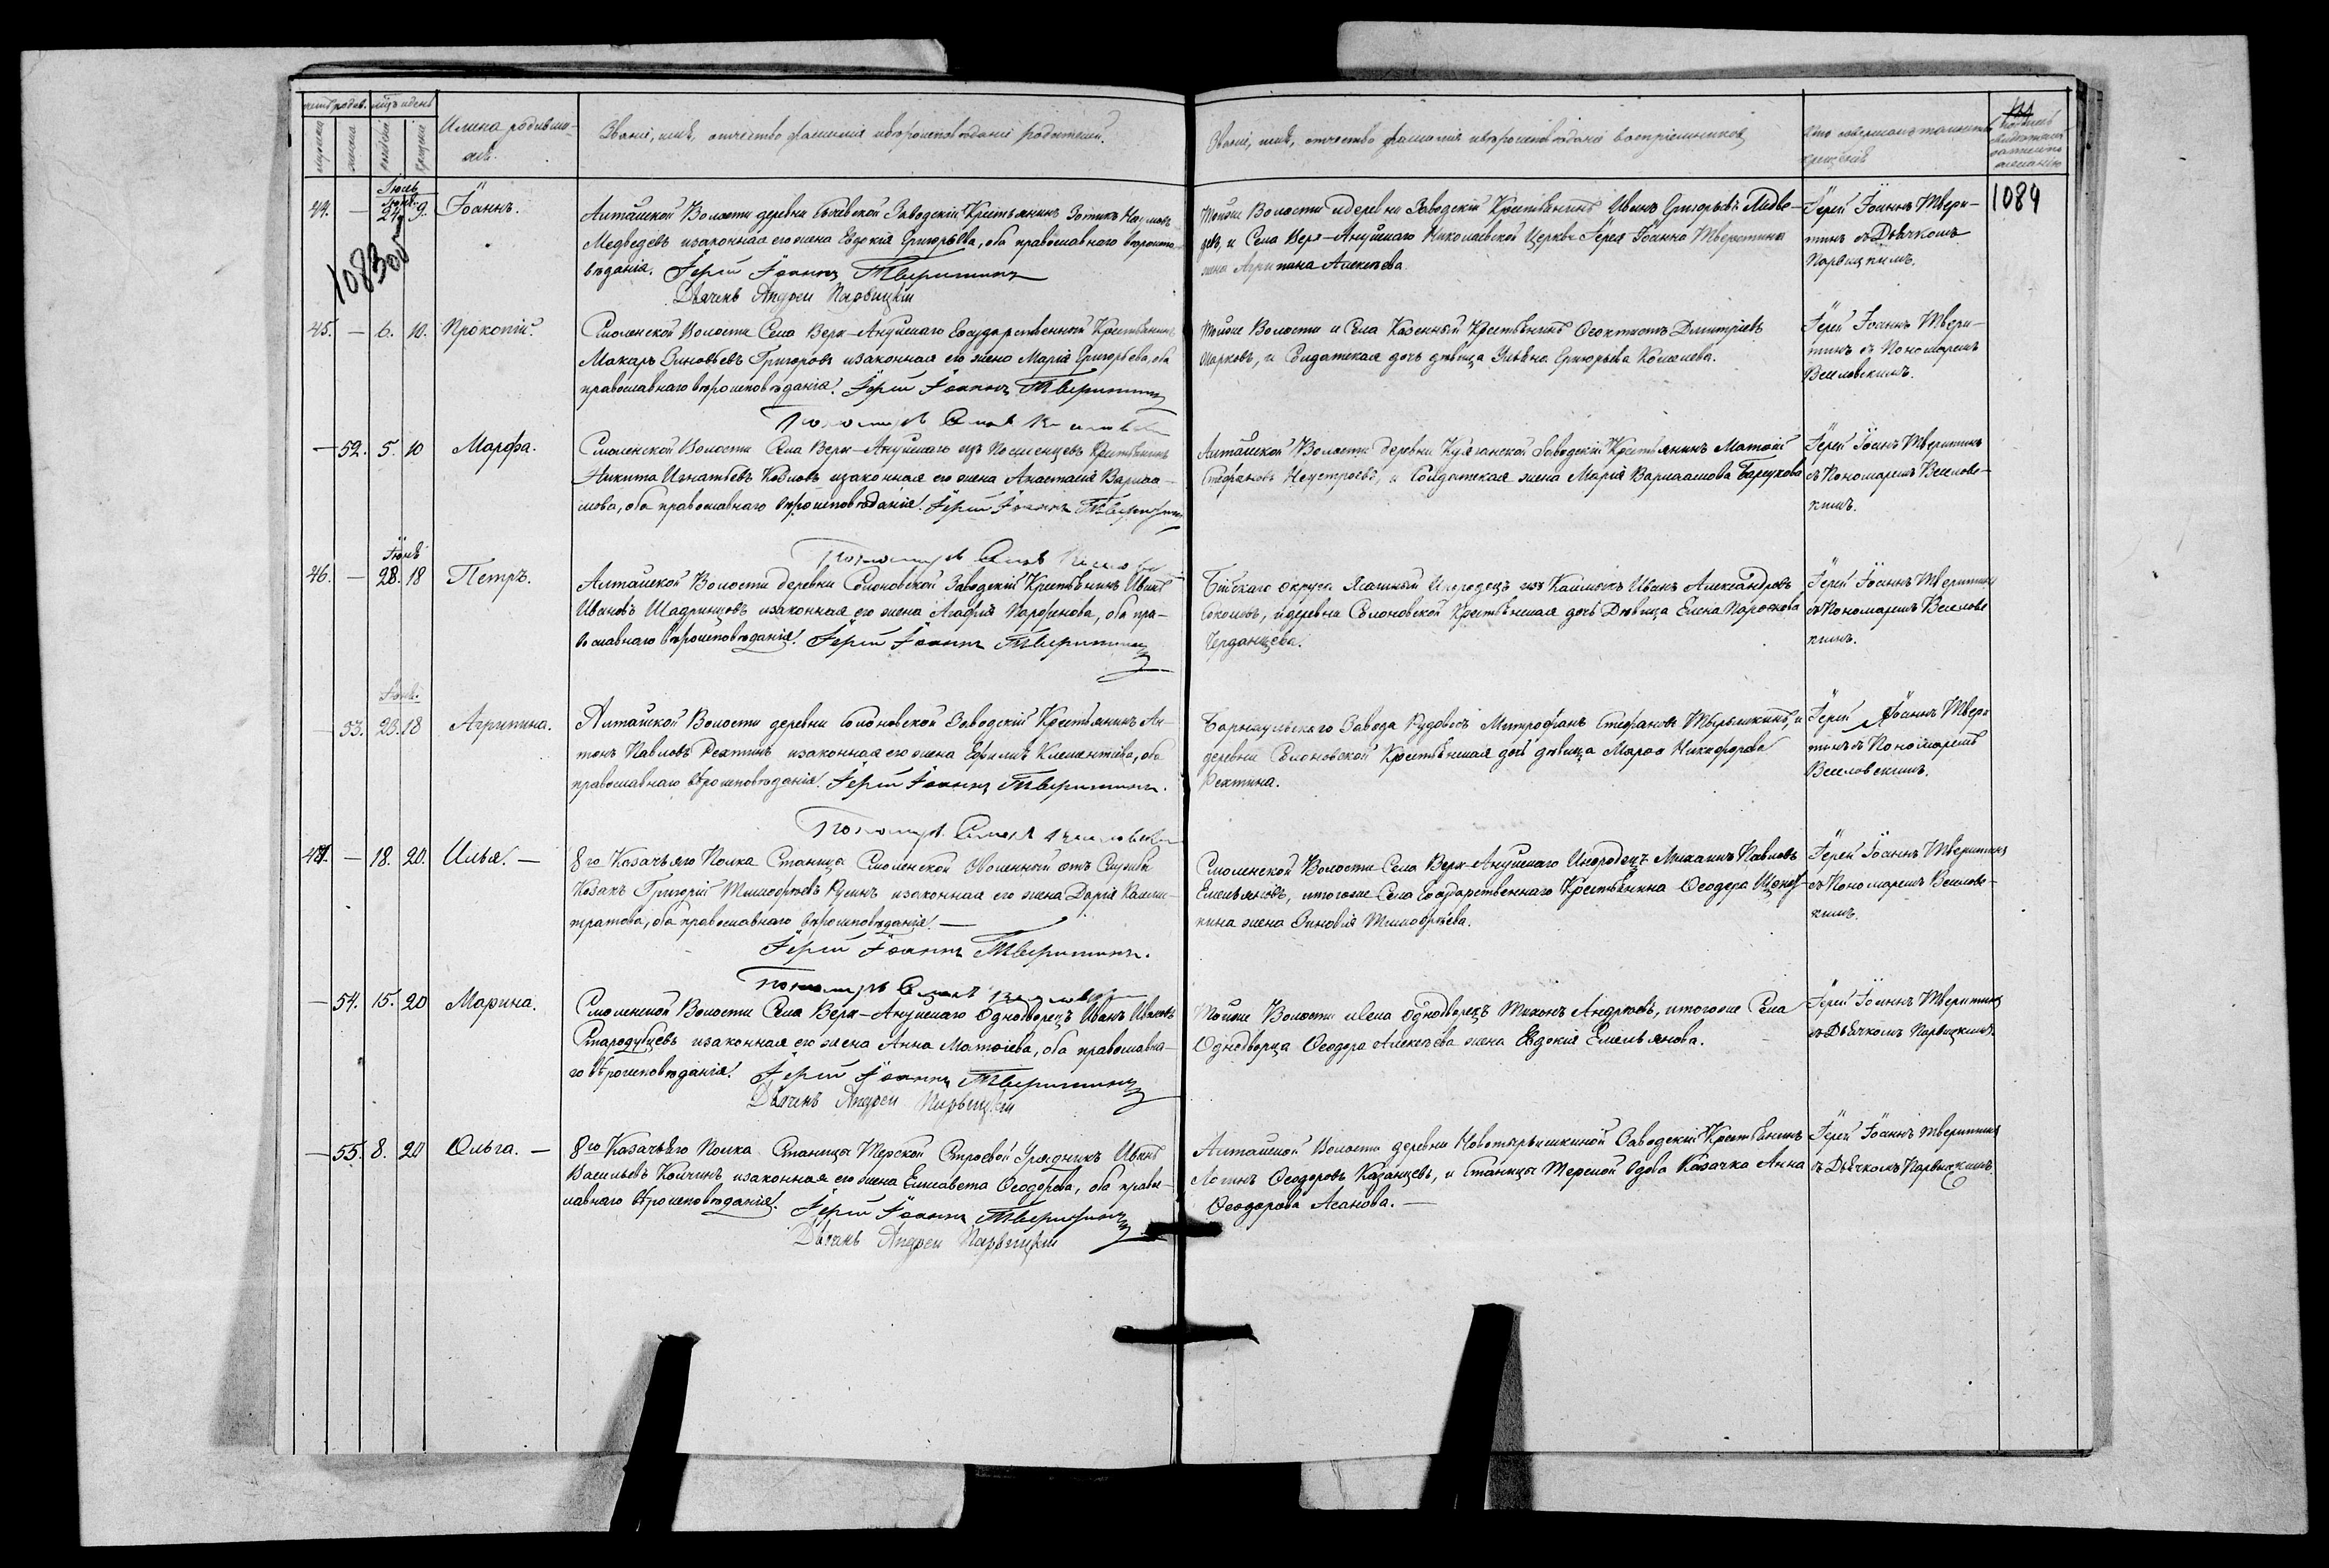 Имена родившихся.
Званіе, имя, отчество фамилія и вѣроисповѣданіе родителей.
44. — 24 9. Іоаннъ.
Алтайской Волости деревни Заводскій Крестьянинъ Зотикъ Наумовъ
Медведевъ и законная его жена Евдокія Григорьева, оба православнаго вѣроиспо-
вѣданія. Іерей Іоаннъ Тверитинъ
Дьячекъ Андрей Парвицкій
1083об
45. — 6. 10. Прокопій.
Смоленской Волости Села Верх-Ануйскаго Государственный Крестьянинъ
Макаръ Зиновьевъ Григоровъ и законная его жена Марія Григорьева, оба
православнаго вѣроисповѣданія. Іерей Іоаннъ Тверитинъ
— 52. 5. 10 Марфа.
Смоленской Волости Села Верх-Ануйскаго изъ Поселенцевъ Крестьянинъ
Никита Игнатьевъ Козловъ и законная его жена Анастасія Варлаа-
мова, оба православнаго вѣроисповѣданія. Іерей Іоаннъ Тверитинъ
Іюнь
46. — 28. 18 Петръ.
Алтайской Волости деревни Солоновской Заводскій Крестьянинъ Иванъ
Ивановъ Шадринцовъ и законная его жена Агафія Парфенова, оба пра-
вославнаго вѣроисповѣданія. Іерей Іоаннъ Тверитинъ
— 53. 23. 18 Агрипина.
Алтайской Волости деревни Солоновской Заводскій Крестьянинъ Ан-
тонъ Павловъ Рехтинъ и законная его жена Ефимія Клементіева, оба
православнаго вѣроисповѣданія. Іерей Іоаннъ Тверитинъ.
47. — 18. 20. Илья. —
8го Казачьяго Полка Станицы Смоленской Уволенный отъ Службы
Козакъ Григорій Тимофѣевъ и законная его жена Дарія Калли-
стратова, оба православнаго вѣроисповѣданія. —
Іерей Іоаннъ Тверитинъ.
— 54. 15. 20 Марина.
Смоленской Волости Села Верх-Ануйскаго Однодворецъ Иванъ Ивановъ
Стародубцевъ и законная его жена Анна Матѳіева, оба православна-
го вѣроисповѣданія. Іерей Іоаннъ Тверитинъ
Дьячекъ Андрей Парвицкій
— 55. 8. 20 Ольга. —
8го Казачьяго Полка Станицы Терской Строевой Урядникъ Иванъ
Васильевъ Колчинъ и законная его жена Елисавета Ѳеодорова, оба право-
славнаго вѣроисповѣданія. Іерей Іоаннъ Тверитинъ
Дьячекъ Андрей Парвицкій
Званіе, имя, отчество фамилія и вѣроисповѣданіе воспріемниковъ
Кто совершалъ таинство
крещенія
1084
Тойже Волости и деревни Заводскій Крестьянинъ Иванъ Григорьевъ Медве-
девъ, и Села Верх-Ануйскаго Николаевской Церкви Іерея Іоанна Тверитина
жена Агрипина Алексѣева.
Іерей Іоаннъ Твери-
тинъ съ Дьячкомъ
Парвицкимъ.
Тойже Волости и Села Казенный Крестьянинъ Ѳеоктистъ Дмитріевъ
Марковъ, и Солдатская дочь дѣвица Ульяна Григорьева.
Іерей Іоаннъ Твери-
тинъ съ Пономаремъ
Веселовскимъ.
Алтайской Волости деревни Куяганской Заводскій Крестьянинъ Матѳій
Стефановъ Неустроевъ, и Солдатская жена Марія Варлаамова Барсукова
Іерей Іоаннъ Тверитинъ
съ Пономаремъ Веселовс-
кимъ.
Бійскаго округа Ясашный Инородецъ изъ Калмыкъ Иванъ Александровъ
Соколовъ, и деревни Солоновской Крестьянская дочь Дѣвица Елена
Черданцева.
Іерей Іоаннъ Тверитинъ
съ Пономаремъ Веселовс
кимъ.
Барнаульскаго Завода Митрофанъ Стефановъ, и
деревни Солоновской Крестьянская дочь дѣвица Никифорова
Рехтина.
Іерей Іоаннъ Твери
тинъ съ Пономаремъ
Веселовскимъ.
Смоленской Волости Села Верх-Ануйскаго Инородецъ Михаилъ Павловъ
Емельяновъ, и тогоже Села Государственнаго Крестьянина Ѳеодора
жена Зиновія Тимофѣева.
Іерей Іоаннъ Тверитинъ
съ Пономаремъ Веселовс-
кимъ.
Тойже Волости и Села Однодворецъ Тихонъ Андреевъ, и тогоже Села
Однодворца Ѳеодора Алексѣева жена Евдокія Емельянова.
Іерей Іоаннъ Тверитинъ
съ Дьячкомъ Парвицкимъ.
Алтайской Волости деревни Новотырышкиной Заводскій Крестьянинъ
Логинъ Ѳеодоровъ Казанцевъ, и Станицы Терской Вдова Казачка Анна
Ѳеодорова Асанова. —
Іерей Іоаннъ Тверитинъ
съ Дьячкомъ Парвицкимъ.